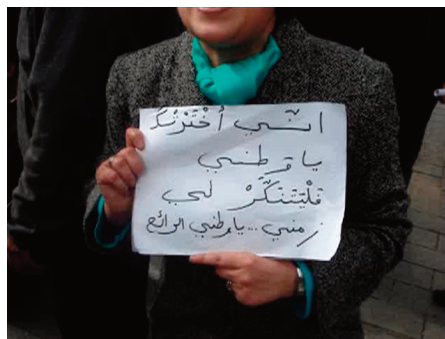 انّـي أخْتَرْتُكَ
يا وطنـي
فَلْيَتَنَكَّرْ لـي
زمني.. يا وطني الرائع